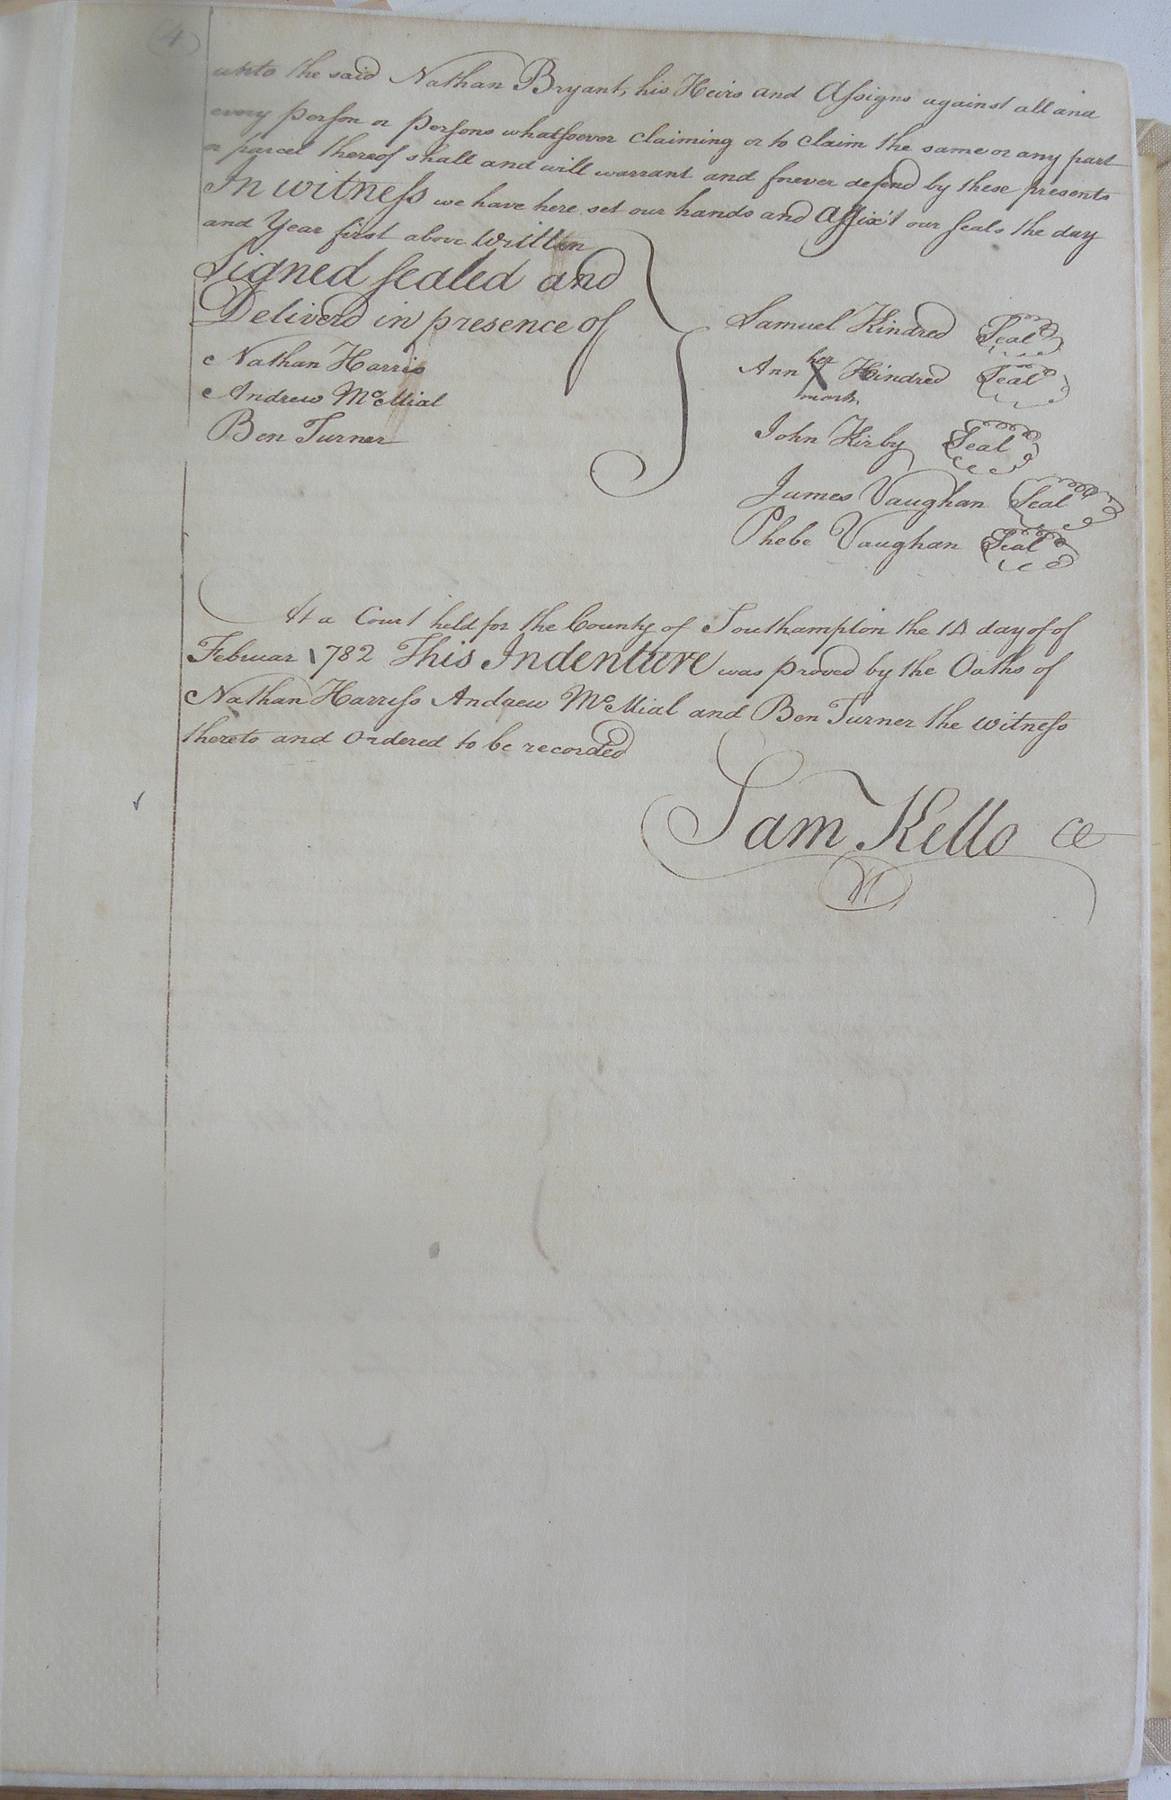 (4)
unto the said Nathan Bryant, his Heirs and Assigns against all and
every person or persons whatsoever claiming or to claim the same or any part
or parcel thereof shall and will warrant and forever defend by these presents
In witness we have here set our hands and Affix't our Seals the day
and Year first above Written
Signed sealed and
Deliverd in presence of
Nathan Harris
Andrew McMial
Ben Turner
Samuel Kindred Seal
her
Ann X Kindred Seal
mark
John Kirby Seal
James Vaughan Seal
Phebe Vaughan Seal
At a Court held for the County of Southampton the 14 day of of
Februar 1782 This Indenture was proved by the Oaths of
Nathan Harriss Andrew McMial and Ben Turner the witness
thereto and Ordered to be recorded
Sam Kello